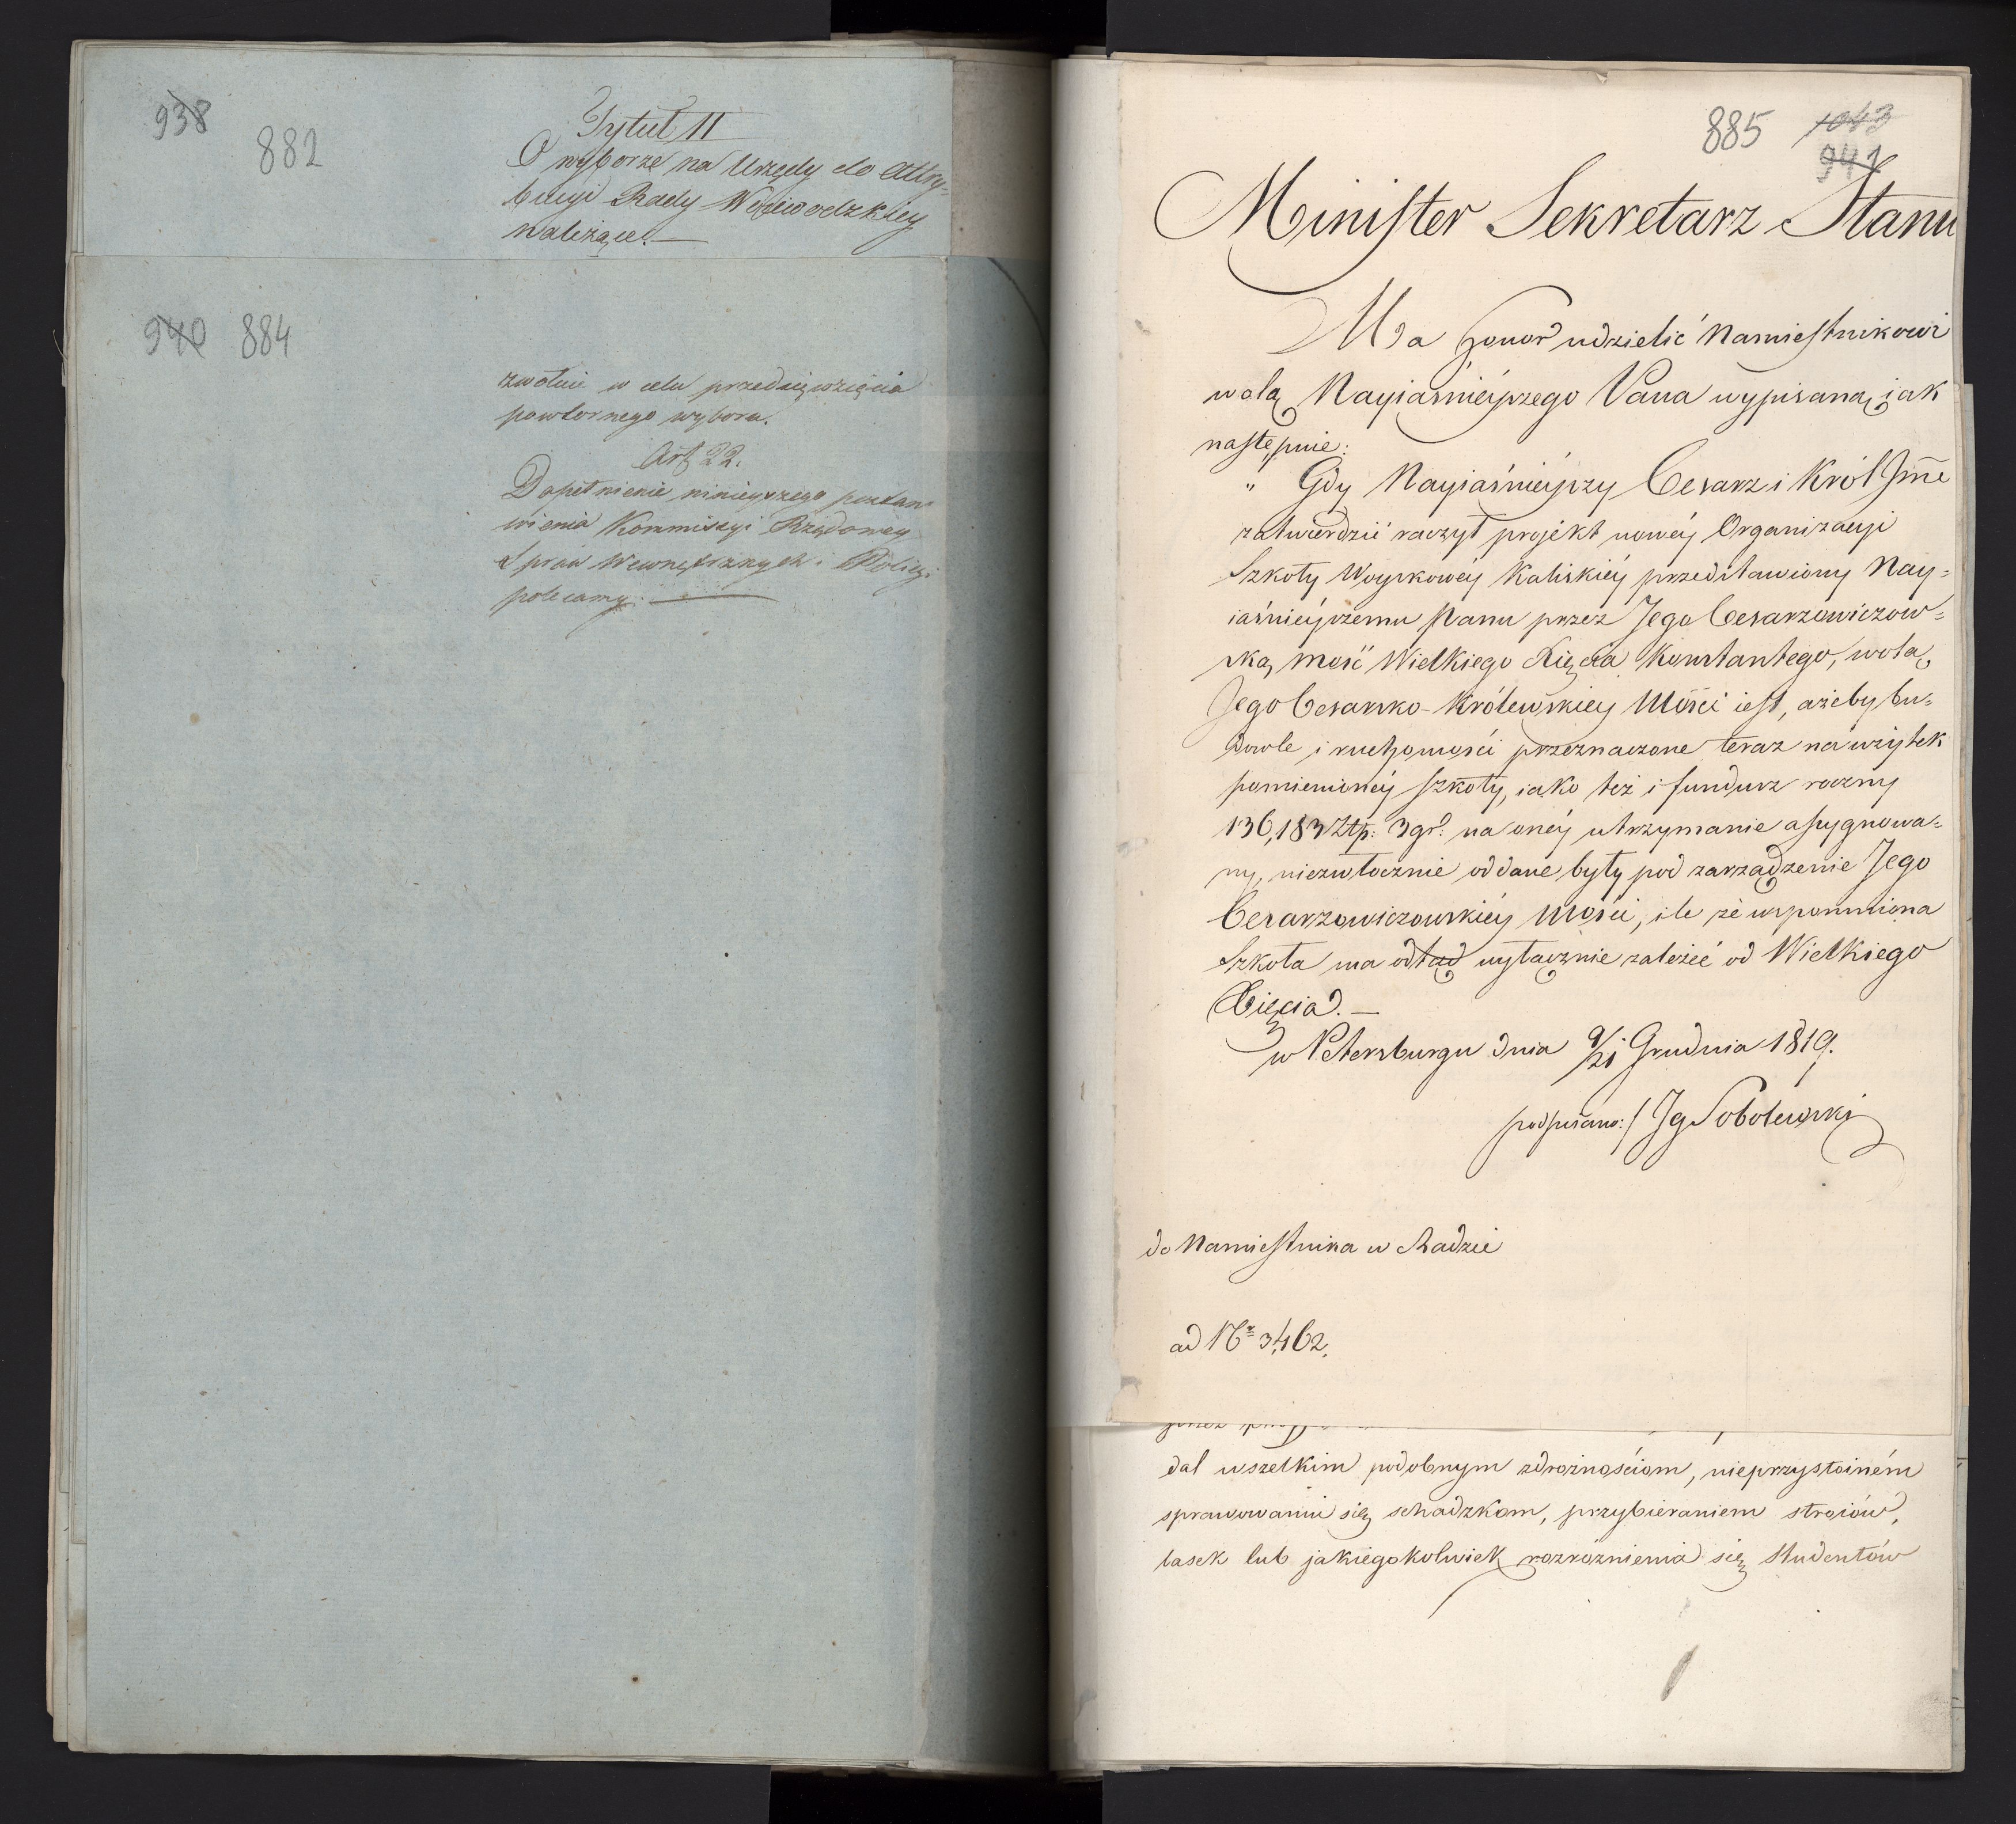 938
882
Tytuł II
O wyborze na Urzędy do Attry-
bucyi Rady Wojewodzkiey
należące.—
940 884
zwołnie w celu przedsięwzięcia
powtornego wyboru.
Art 22.
Dopełnienie ninieyszego postano
wienia Kommissyi Rządowey
Spraw Wewnętrznych i Policyi
polecamy.—
885 1043
941
Minister Sekretarz Stanu
Ma honor udzielić Namiestnikowi
wolą Nayiaśnieyszego Pana wypisaną, iak
następuie:
„ Gdy Nayiaśnieyszy Cesarz i Król Jmć
zatwierdzić raczył projekt nowéy Organizacyi
Szkoły Woyskowéy Kaliskiéy przedstawiony Nay=
iaśnieyszemu Panu przez Jego Cesarzewiczow=
ską Mość Wielkiego Xięcia Konstantego, wolą
Jego Cesarsko-Królewskiey Mości iest, ażeby bu=
dowle i ruchomości przeznaczone teraz na użytek
pomienionéy szkoły, iako też i fundusz roczny
136,183 Złp: 3 gr: na onéy utrzymanie assygnowa=
ny, niezwłocznie oddane były pod zarządzenie Jego
Cesarzewiczowskiéy Mości, ile że wspomniona
Szkoła ma odtąd wyłącznie zależeć od Wielkiego
Xięcia.—
w Petersburgu dnia 9/21 Grudnia 1819.
podpisano:/ Ig Sobolewski
do Namiestnika w Radzie
ad Nr 3,462.
dal wszelkim podobnym zdrożnościom, nieprzystoiném
sprawowaniu się, schadzkom, przybieraniem stroiów,
lasek lub jakiegokolwiek rozróżnienia się Studentów